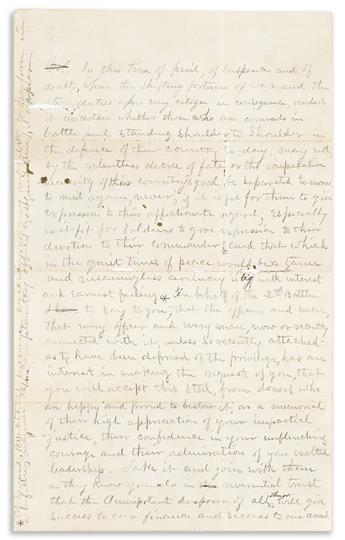 Col. In this time of peril, of suspense and of
doubt, when the shifting fortunes of war, and the
stern duties upon every citizen in consequence, render
it uncertain whether those who are comrads in
battle, and standing shoulder to shoulder in
the defence of their country to-day, may not
by the relentless decree of fate, or the
necessity of their country's good, be separated to-morrow
to meet again, never, if it is fit for them to give
expression to their affectionate regard, especially
is it fit for soldiers to give expression to their
devotion to their commander, and that which
in the quiet times of peace would be a tame
and meaningless ceremony is with interest
and earnest feeling * In behalf of the 2d Battln
to say to you, that the officers and men,
that every officer and every man, now or recently
connected with it, unless so recently attached
as to have been deprived of the privilege, has an
interest in making the request of you, that
you will accept this steed, from donors who
are happy and proud to bestow it, as a memorial
of their high appreciation of your impartial
justice, their confidence in your unflinching
courage and their admiration of your exalted
leadership. Take it and join with them
as they know you do in reverential trust
that the Omnipotent disposer of all things will give
success to our finance and success to our arms.